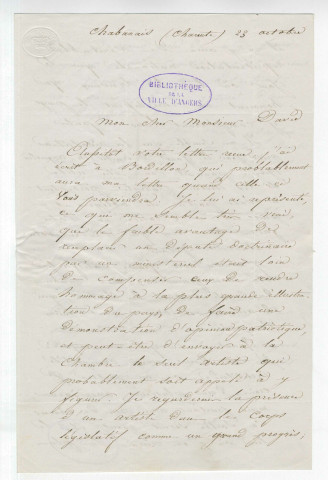 Chabanais (Charente) 23 octobre
BIBLIOTHÈQUE
DE LA
VILLE D'ANGERS
Mon cher Monsieur David
Aussitôt votre lettre reçue, j'ai
écrit à Bordillon qui probablement
aura ma lettre quand celle ci
vous parviendra. Je lui ai représenté,
ce que me semble très vrai,
que le faible avantage de
remplacer un député doctrinaire
par un ministériel était loin
de compenser ceux de rendre
hommage à la plus grande illustra-
tion du pays, de faire une
démonstration d'opinion patriotique,
et peut-être d'envoyer à la
Chambre le seul artiste qui
probablement soit appelé à y
figurer. Je regarderais la présence
d'un artiste dans le corps
législatif comme un grand progrès,